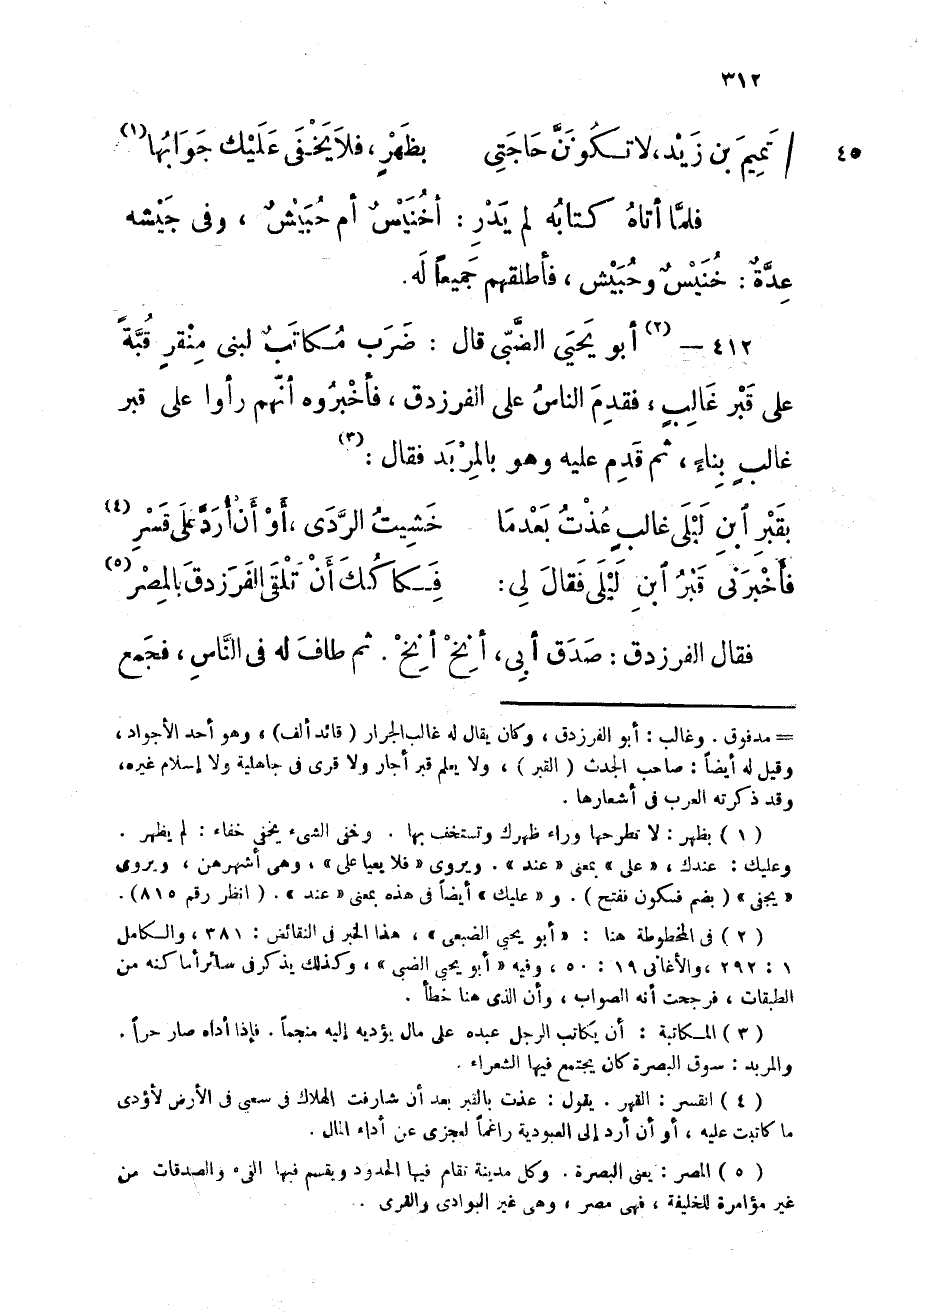 ٣١٢
٤٥ / تَمِيمَ بن زَيْد، لا تـكُونَنَّ حَاجَتِي بظَهْرٍ، فلاَ يَخْفَى عَلَيْك جَوَابُها (١)
فلمَّا أتاهُ كتابُه لم يَدْرِ : أخُنَيْسٌ أم حُبَيْشٌ ، وفى جَيْشه
عِدَّةٌ : خُنَيْسٌ وحُبَيْش ، فأطلقهم جَميعاً لَه.
٤١٢ — (٢) أبو يَحيَى الضَّبّى قال : ضَرَب مُـكاتَبٌ لبنى مِنْقرٍ قُبَّةً
على قَبْر غَالِبٍ ، فقدمَ الناسُ على الفرزدق ، فأخْبرُوه أنّهم رأوا على قبر
غالبٍ بِناءً ، ثم قَدِم عليه وهو بالمِرْبَد فقال : (٣)
بِقَبْرِ ٱبنِ لَيْلَى غالبٍ عُذْتُ بَعْدمَا خَشِيتُ الرَّدَى ، أَوْ أن أُرَدَّ عَلَى قَسْرِ (٤)
فأَخْبرَنى قَبْرُ ٱبنِ لَيْلَى فَقَالَ لِي : فِـكاكُكَ أَنْ تَلْقَى الفَرَزدقَ بالمِصْرِ (٥)
فقال الفرزدق : صَدَق أبِى ، أنِخْ أنِخْ . ثم طافَ له فى النَّاسِ ، فجَمع
= مدفوق . وغالب : أبو الفرزدق ، وكان يقال له غالب الجرار ( قائد ألف ) ، وهو أحد الأجواد ،
وقيل له أيضاً : صاحب الجدث ( القبر ) ، ولا يعلم قبر أجار ولا قرى فى جاهلية ولا إسلام غيره،
وقد ذكرته العرب فى أشعارها .
( ١ ) بظهر : لا تطرحها وراء ظهرك وتستخف بها . وخفى الشىء يخفى خفاء : لم يظهر .
وعليك : عندك ، « على » بمعنى « عند » . ويروى « فلا يعيا على » ، وهى أشهرهن ، ويروى
« يجفى » ( بضم فسكون ففتح ) . و « عليك » أيضاً فى هذه بمعنى « عند » . ( انظر رقم ٨١٥ ) .
( ٢ ) فى المخطوطة هنا : « أبو يحيى الضبعى » ، هذا الخبر فى النقائض : ٣٨١ ، والـكامل
١ : ٢٩٢ ، والأغانى ١٩ : ٥٠ ، وفيه « أبو يحيى الضبى » ، وكذلك يذكر فى سائر أماكنه من
الطبقات ، فرجحت أنه الصواب ، وأن الذى هنا خطأ .
( ٣ ) المـكاتبة : أن يكاتب الرجل عبده على مال يؤديه إليه منجماً . فإذا أداه صار حراً .
والمربد : سوق البصرة كان يجتمع فيها الشعراء .
( ٤ ) القسر : القهر . يقول : عذت بالقبر بعد أن شارفت الهلاك فى سعيى فى الأرض لأؤدى
ما كاتبت عليه ، أو أن أرد إلى العبودية راغماً لعجزى عن أداء المال .
( ٥ ) المصر : يعنى البصرة . وكل مدينة تقام فيها الحدود ويقسم فيها الفىء والصدقات من
غير مؤامرة للخليفة ، فهى مصر ، وهى غير البوادى والقرى .